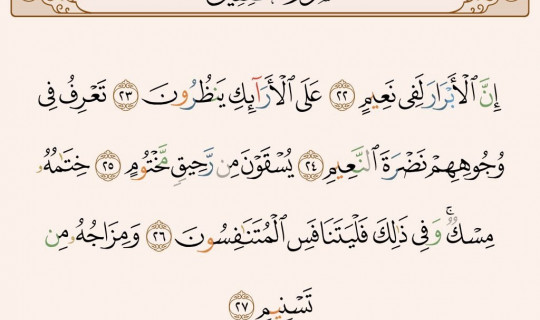 إِنَّ الْأَبْرَارَ لَفِي نَعِيمٍ ٢٢ عَلَى الْأَرَائِكِ يَنظُرُونَ ٢٣ تَعْرِفُ فِي
وُجُوهِهِمْ نَضْرَةَ النَّعِيمِ ٢٤ يُسْقَوْنَ مِن رَّحِيقٍ مَّخْتُومٍ ٢٥ خِتَامُهُ
مِسْكٌ ۚ وَفِي ذَٰلِكَ فَلْيَتَنَافَسِ الْمُتَنَافِسُونَ ٢٦ وَمِزَاجُهُ مِن
تَسْنِيمٍ ٢٧